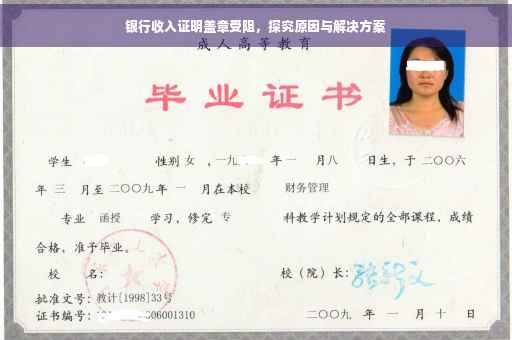 银行收入证明盖章受阻，探究原因与解决方案
成人高等教育
毕业证书
学生 性别 女 ，一九 年 一 月 八 日生，于 二〇〇六
年 三 月至 二〇〇九 年 一 月在本校 财务管理
专业 函授 学习，修完 专 科教学计划规定的全部课程，成绩
合格，准予毕业。
校 名： 校（院）长：
批准文号：教计[1998]33号
证书编号： 06001310 二〇〇九 年 一 月 十 日